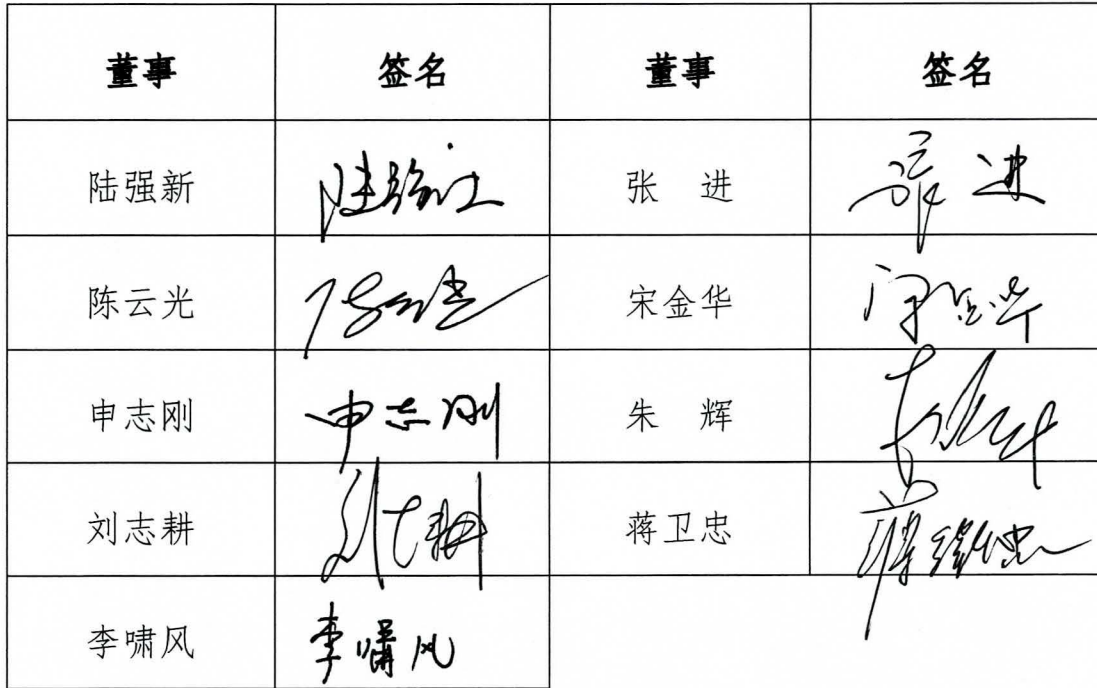 董事 签名 董事 签名
陆强新 陆强新 张 进 张进
陈云光 陈云光 宋金华 宋金华
申志刚 申志刚 朱 辉 朱辉
刘志耕 刘志耕 蒋卫忠
李啸风 李啸风